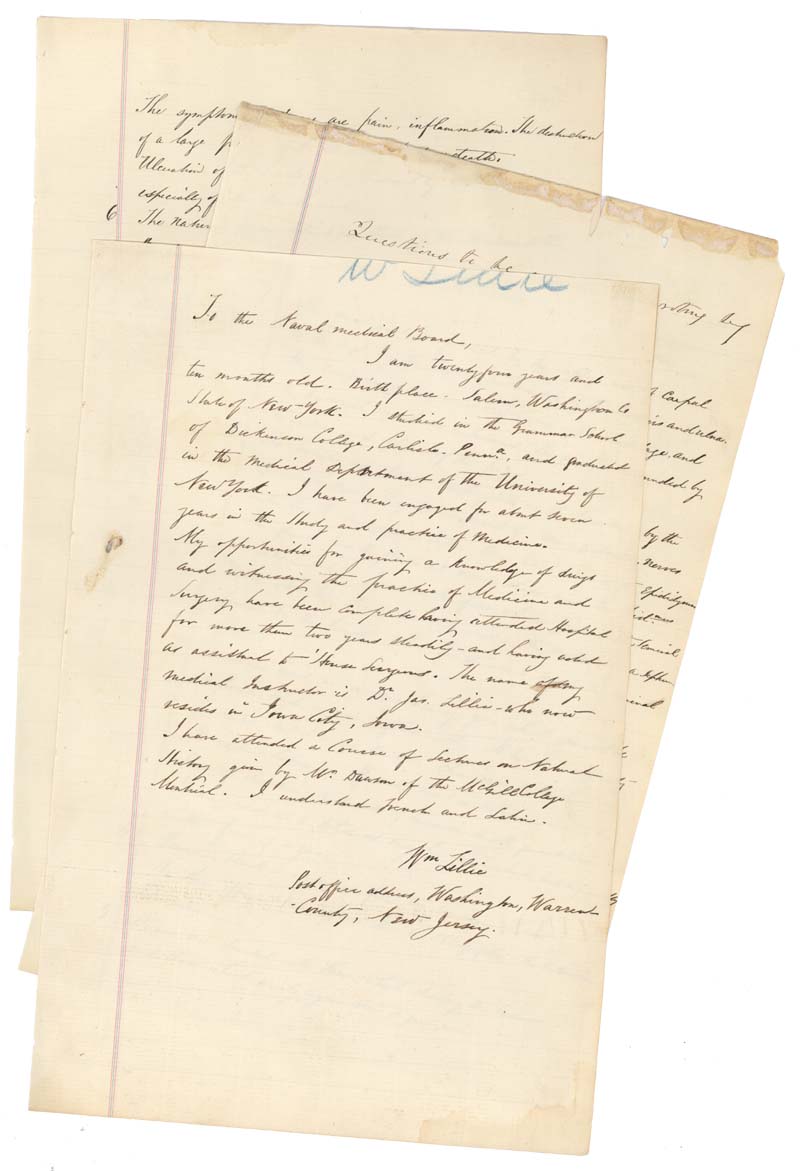 The symptoms are pain, inflammation. The destruction
of a large
death.
Ulceration of
especially of
6 The nature
Questions to be
Wm Lillie
To the Naval medical Board,
I am twenty four years and
ten months old. Birth place - Salem, Washington Co
State of New-York. I studied in the Grammar School
of Dickinson College, Carlisle. Penna, and graduated
in the Medical Department of the University of
New York. I have been engaged for about seven
years in the Study and practice of Medicine.
My opportunities for gaining a knowledge of drugs
and witnessing the practice of Medicine and
Surgery have been complete having attended Hospital
for more than two years steadily - and having acted
as assistant to House Surgeons. The name of my
medical Instructor is Dr Jas. Lillie - who now
resides in Iowa City, Iowa.
I have attended a Course of Lectures on Natural
History given by Mr Dawson of the McGill College
Montreal. I understand french and Latin.
Wm Lillie
Post office address, Washington, Warren
County, New Jersey.
Carpal
and ulna.
and
by
by the
nerves
Epididymis